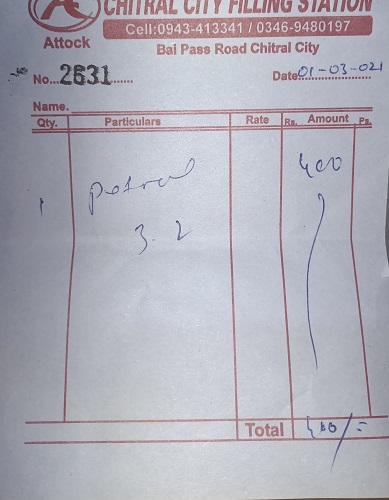 CHITRAL CITY FILLING STATION
Cell:0943-413341 / 0346-9480197
Attock
Bai Pass Road Chitral City
No...2631......
Date 01-03-021
Name.
Qty. Particulars Rate Rs. Amount Ps.
1 Petrol 400
3.2
Total 400/=